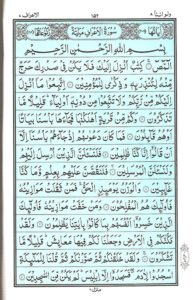 ولو اننا ٨ ١٥٢ الاعراف ٧
سُوْرَةُ الْاَعْرَافِ مَكِّيَّةٌ
بِسْمِ اللّٰهِ الرَّحْمٰنِ الرَّحِيْمِ
الٓمّٓصٓ ۝ كِتٰبٌ اُنْزِلَ اِلَيْكَ فَلَا يَكُنْ فِيْ صَدْرِكَ حَرَجٌ
مِّنْهُ لِتُنْذِرَ بِهٖ وَذِكْرٰى لِلْمُؤْمِنِيْنَ ۝ اِتَّبِعُوْا مَآ اُنْزِلَ
اِلَيْكُمْ مِّنْ رَّبِّكُمْ وَلَا تَتَّبِعُوْا مِنْ دُوْنِهٖٓ اَوْلِيَآءَ قَلِيْلًا مَّا
تَذَكَّرُوْنَ ۝ وَكَمْ مِّنْ قَرْيَةٍ اَهْلَكْنٰهَا فَجَآءَهَا بَاْسُنَا بَيَاتًا
اَوْ هُمْ قَآئِلُوْنَ ۝ فَمَا كَانَ دَعْوٰىهُمْ اِذْ جَآءَهُمْ بَاْسُنَآ اِلَّآ اَنْ
قَالُوْٓا اِنَّا كُنَّا ظٰلِمِيْنَ ۝ فَلَنَسْئَلَنَّ الَّذِيْنَ اُرْسِلَ اِلَيْهِمْ
وَلَنَسْئَلَنَّ الْمُرْسَلِيْنَ ۝ فَلَنَقُصَّنَّ عَلَيْهِمْ بِعِلْمٍ وَّمَا كُنَّا
غَآئِبِيْنَ ۝ وَالْوَزْنُ يَوْمَئِذِ ۨالْحَقُّ فَمَنْ ثَقُلَتْ مَوَازِيْنُهٗ
فَاُولٰٓئِكَ هُمُ الْمُفْلِحُوْنَ ۝ وَمَنْ خَفَّتْ مَوَازِيْنُهٗ فَاُولٰٓئِكَ
الَّذِيْنَ خَسِرُوْٓا اَنْفُسَهُمْ بِمَا كَانُوْا بِاٰيٰتِنَا يَظْلِمُوْنَ ۝ وَلَقَدْ
مَكَّنّٰكُمْ فِي الْاَرْضِ وَجَعَلْنَا لَكُمْ فِيْهَا مَعَايِشَ قَلِيْلًا مَّا
تَشْكُرُوْنَ ۝ وَلَقَدْ خَلَقْنٰكُمْ ثُمَّ صَوَّرْنٰكُمْ ثُمَّ قُلْنَا لِلْمَلٰٓئِكَةِ
اسْجُدُوْا لِاٰدَمَ فَسَجَدُوْٓا اِلَّآ اِبْلِيْسَ لَمْ يَكُنْ مِّنَ السّٰجِدِيْنَ ۝
منزل ٢